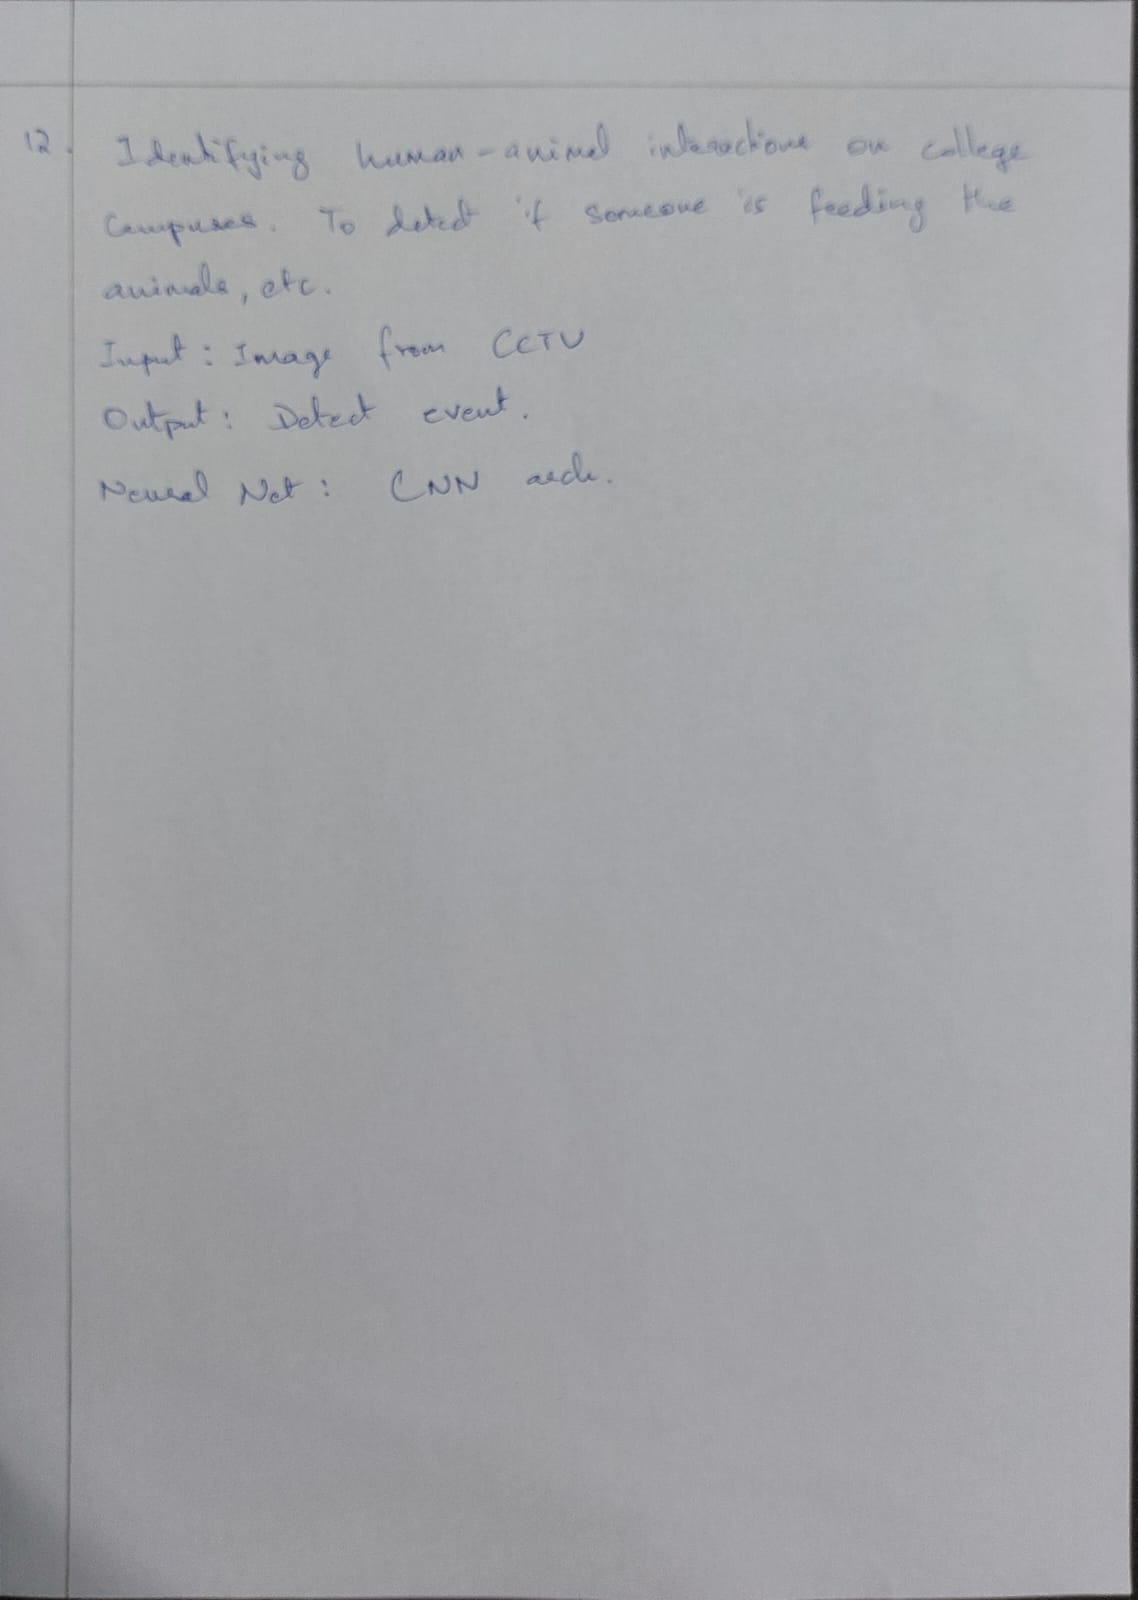 12. Identifying human-animal interactions on college
Campuses. To detect if someone is feeding the
animals, etc.
Input: Image from CCTV
Output: Detect event.
Neural Net: CNN arch.